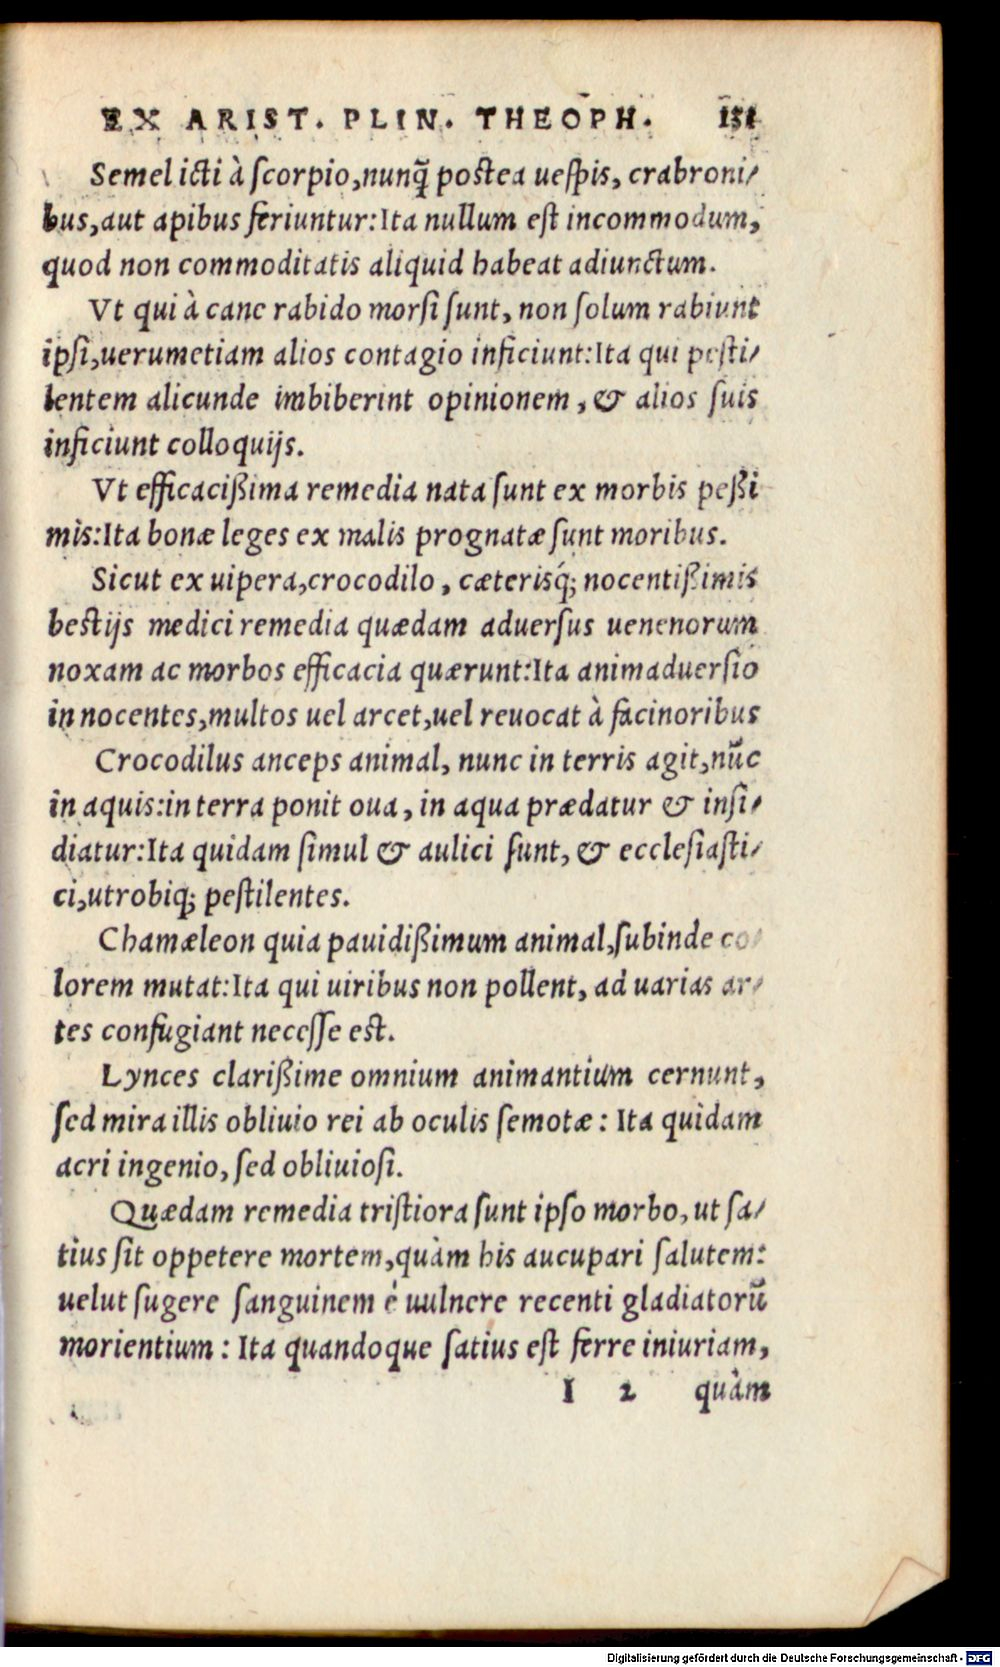 EX ARIST. PLIN. THEOPH. 131
Semel icti à ſcorpio,nunq̃ postea ueſpis, crabroni⸗
bus,aut apibus feriuntur:Ita nullum eſt incommodum,
quod non commoditatis aliquid habeat adiunctum.
Vt qui à cane rabido morſi ſunt, non ſolum rabiunt
ipſi,uerumetiam alios contagio inficiunt:Ita qui peſti⸗
lentem alicunde imbiberint opinionem, & alios ſuis
inficiunt colloquijs.
Vt efficacißima remedia nata ſunt ex morbis peßi
mis:Ita bonæ leges ex malis prognatæ ſunt moribus.
Sicut ex uipera,crocodilo, cæterisq́; nocentißimis
beſtijs medici remedia quædam aduerſus uenenorum
noxam ac morbos efficacia quærunt:Ita animaduerſio
in nocentes,multos uel arcet,uel reuocat à facinoribus
Crocodilus anceps animal, nunc in terris agit,nūc
in aquis:in terra ponit oua, in aqua prædatur & inſi⸗
diatur:Ita quidam ſimul & aulici ſunt, & eccleſiaſti⸗
ci,utrobiq; peſtilentes.
Chamæleon quia pauidißimum animal,ſubinde co⸗
lorem mutat:Ita qui uiribus non pollent, ad uarias ar⸗
tes confugiant neceſſe eſt.
Lynces clarißime omnium animantium cernunt,
ſed mira illis obliuio rei ab oculis ſemotæ: Ita quidam
acri ingenio, ſed obliuioſi.
Quædam remedia triſtiora ſunt ipſo morbo, ut ſa⸗
tius ſit oppetere mortem,quàm his aucupari ſalutem:
uelut ſugere ſanguinem è uulnere recenti gladiatorū
morientium: Ita quandoque ſatius eſt ferre iniuriam,
I 2 quàm
Digitalisierung gefördert durch die Deutsche Forschungsgemeinschaft - DFG